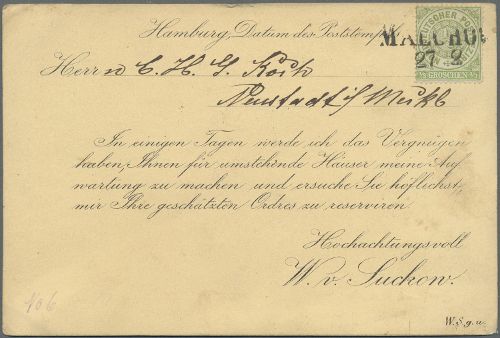 Hamburg, Datum des Poststempels
MALCHOW
27 2
NORDDEUTSCHER POSTBEZIRK
1/3 GROSCHEN 1/3
Herrn C. H. G. Koch
Neustadt i/ Meckl
In einigen Tagen werde ich das Vergnügen
haben, Ihnen für umstehende Häuser meine Auf-
wartung zu machen und ersuche Sie höflichst,
mir Ihre geschätzten Ordres zu reserviren.
Hochachtungsvoll
W. v. Suckow.
106
W. S. g. u.